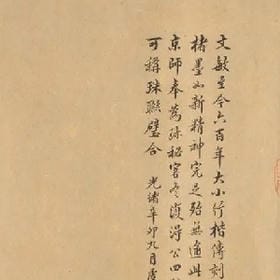 文敏至今六百年大小行楷傳刻
楮墨如新精神完足殆無逾此
京師奉為珠秘客冬復得公四
可稱珠聯璧合 光緒辛卯九月